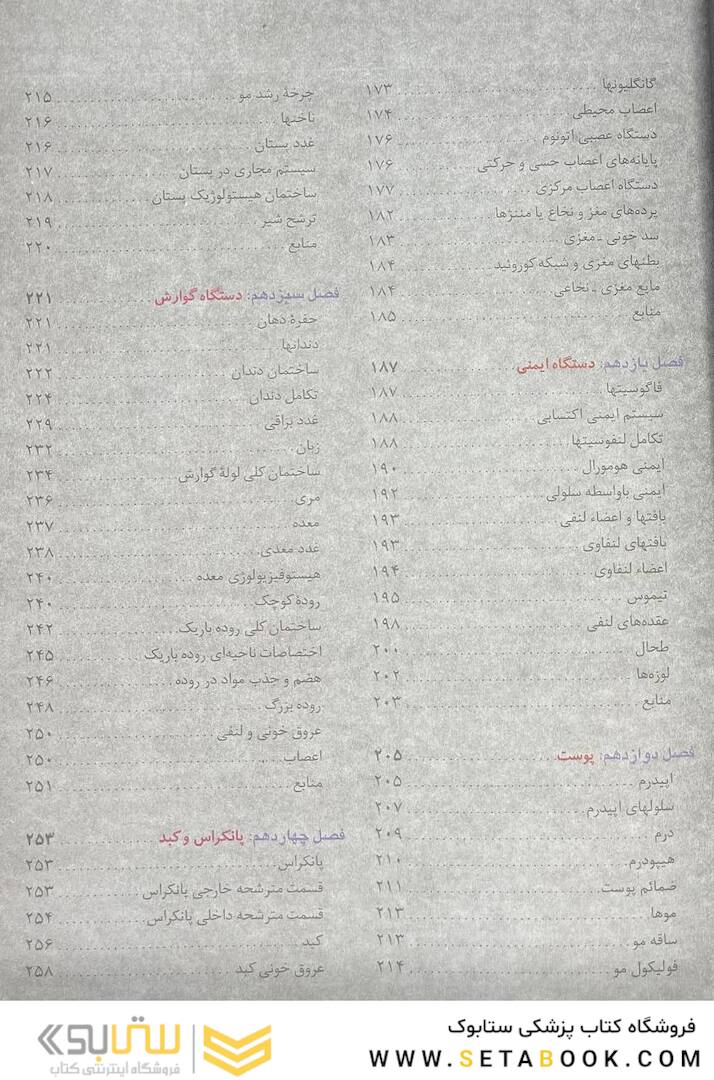 گانگلیونها ۱۷۳
اعصاب محیطی ۱۷۴
دستگاه عصبی اتونوم ۱۷۶
پایانه‌های اعصاب حسی و حرکتی ۱۷۶
دستگاه اعصاب مرکزی ۱۷۷
پرده‌های مغز و نخاع یا مننژها ۱۸۲
سد خونی ـ مغزی ۱۸۳
بطنهای مغزی و شبکه کوروئید ۱۸۴
مایع مغزی ـ نخاعی ۱۸۴
منابع ۱۸۵
فصل یازدهم: دستگاه ایمنی ۱۸۷
فاگوسیتها ۱۸۷
سیستم ایمنی اکتسابی ۱۸۸
تکامل لنفوسیتها ۱۸۸
ایمنی هومورال ۱۹۰
ایمنی باواسطه سلولی ۱۹۲
بافتها و اعضاء لنفی ۱۹۳
بافتهای لنفاوی ۱۹۳
اعضاء لنفاوی ۱۹۴
تیموس ۱۹۵
عقده‌های لنفی ۱۹۸
طحال ۲۰۰
لوزه‌ها ۲۰۲
منابع ۲۰۳
فصل دوازدهم: پوست ۲۰۵
اپیدرم ۲۰۵
سلولهای اپیدرم ۲۰۷
درم ۲۰۹
هیپودرم ۲۱۰
ضمائم پوست ۲۱۱
موها ۲۱۳
ساقه مو ۲۱۳
فولیکول مو ۲۱۴
چرخهٔ رشد مو ۲۱۵
ناخنها ۲۱۶
غدد پستان ۲۱۶
سیستم مجاری در پستان ۲۱۷
ساختمان هیستولوژیک پستان ۲۱۸
ترشح شیر ۲۱۹
منابع ۲۲۰
فصل سیزدهم: دستگاه گوارش ۲۲۱
حفرهٔ دهان ۲۲۱
دندانها ۲۲۱
ساختمان دندان ۲۲۲
تکامل دندان ۲۲۴
غدد بزاقی ۲۲۹
زبان ۲۳۲
ساختمان کلی لولهٔ گوارش ۲۳۴
مری ۲۳۶
معده ۲۳۷
غدد معدی ۲۳۸
هیستوفیزیولوژی معده ۲۴۰
رودهٔ کوچک ۲۴۰
ساختمان کلی روده باریک ۲۴۲
اختصاصات ناحیه‌ای روده باریک ۲۴۵
هضم و جذب مواد در روده ۲۴۶
روده بزرگ ۲۴۸
عروق خونی و لنفی ۲۵۰
اعصاب ۲۵۰
منابع ۲۵۱
فصل چهاردهم: پانکراس و کبد ۲۵۳
پانکراس ۲۵۳
قسمت مترشحه خارجی پانکراس ۲۵۳
قسمت مترشحه داخلی پانکراس ۲۵۴
کبد ۲۵۶
عروق خونی کبد ۲۵۸
فروشگاه کتاب پزشکی ستابوک
WWW.SETABOOK.COM
ستابوک
فروشگاه اینترنتی کتاب